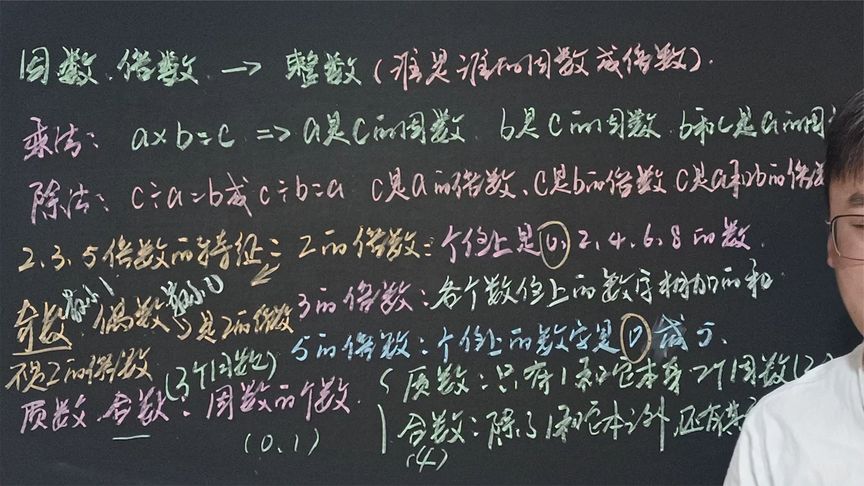 因数 倍数 → 整数(谁是谁的因数或倍数).
乘法: a×b=c => a是c的因数 b是c的因数 b和c是a的因
除法: c÷a=b或c÷b=a c是a的倍数、c是b的倍数 c是a和b的倍
2、3、5倍数的特征: 2的倍数: 个位上是0、2、4、6、8的数.
奇数 最小1 偶数 最小0 是2的倍数
3的倍数: 各个数位上的数字相加的和
不是2的倍数
5的倍数: 个位上的数字是0或5.
(3个因数)
质数 合数: 因数的个数.
(0、1)
质数: 只有1和它本身2个因数(2)
合数: 除了1和它本之外,还有
(4)